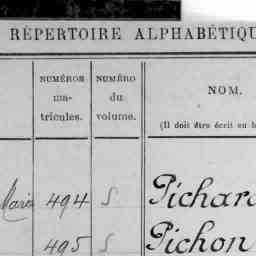 RÉPERTOIRE ALPHABÉTIQU
NUMÉROS ma- tricules. NUMÉRO du volume. NOM. (Il doit être écrit en b
Marie 494 5 Pichard
495 5 Pichon